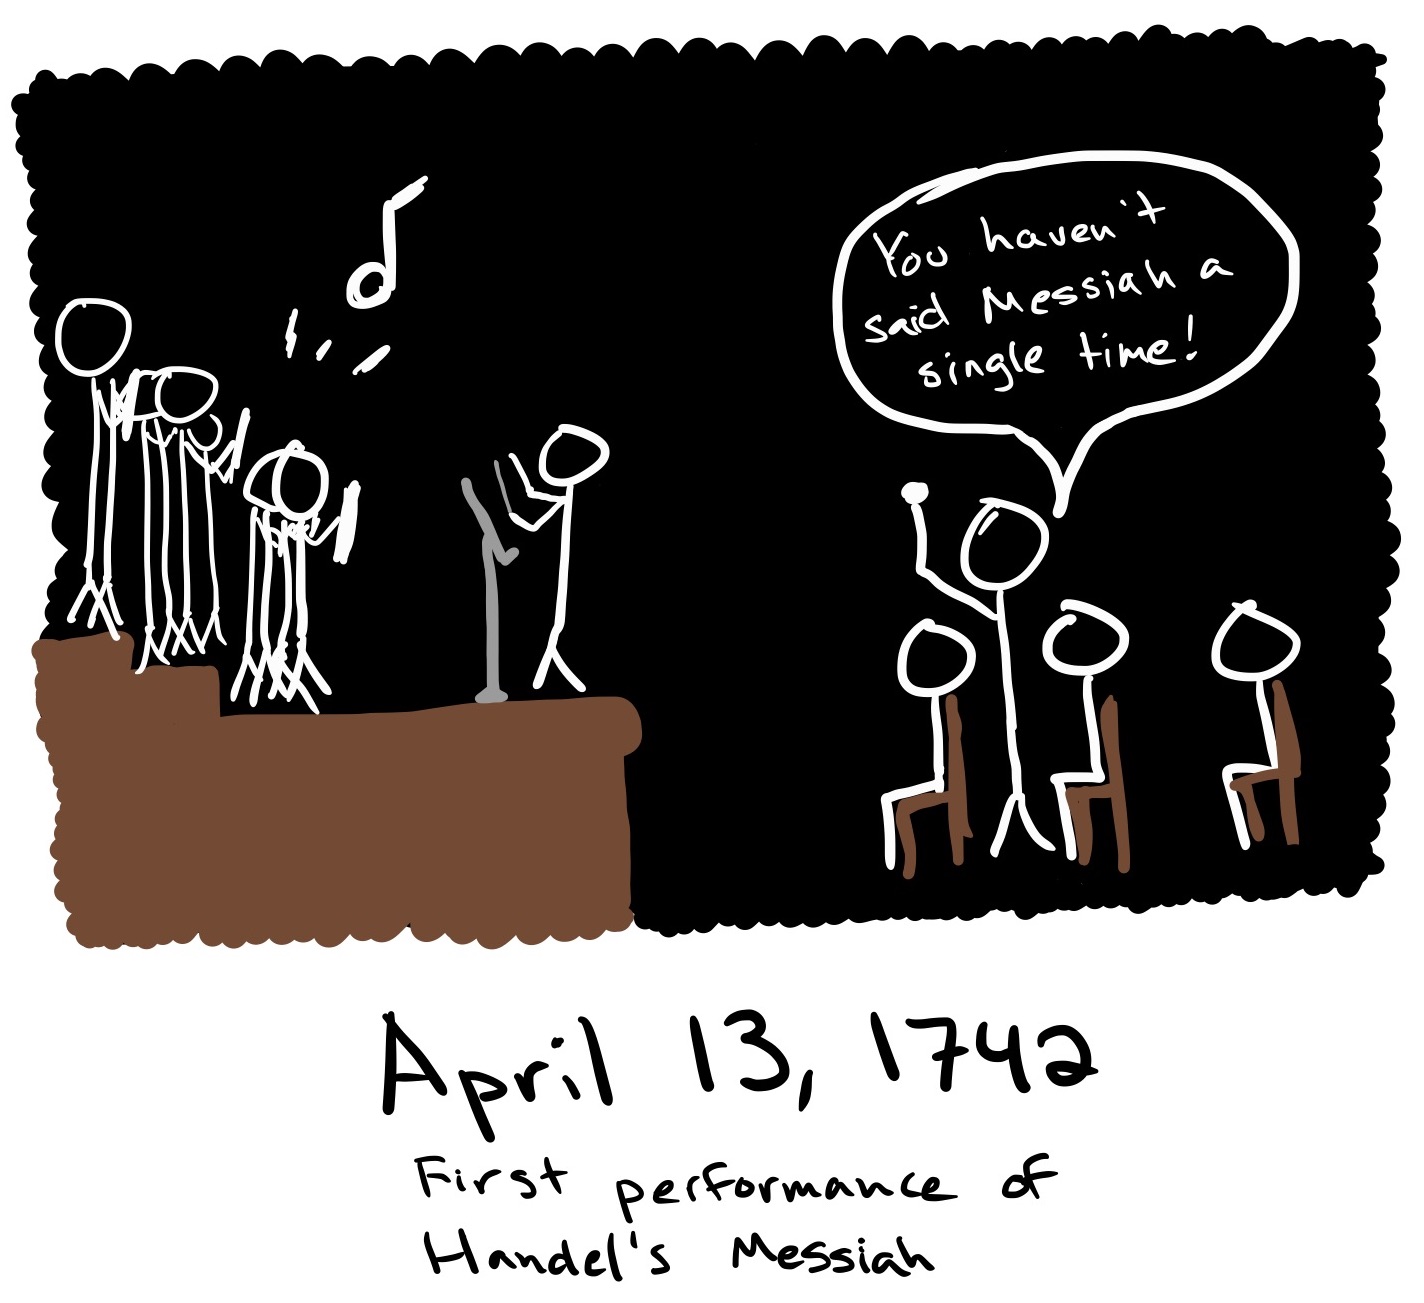 You haven't
said Messiah a
single time!
April 13, 1742
First performance of
Handel's Messiah